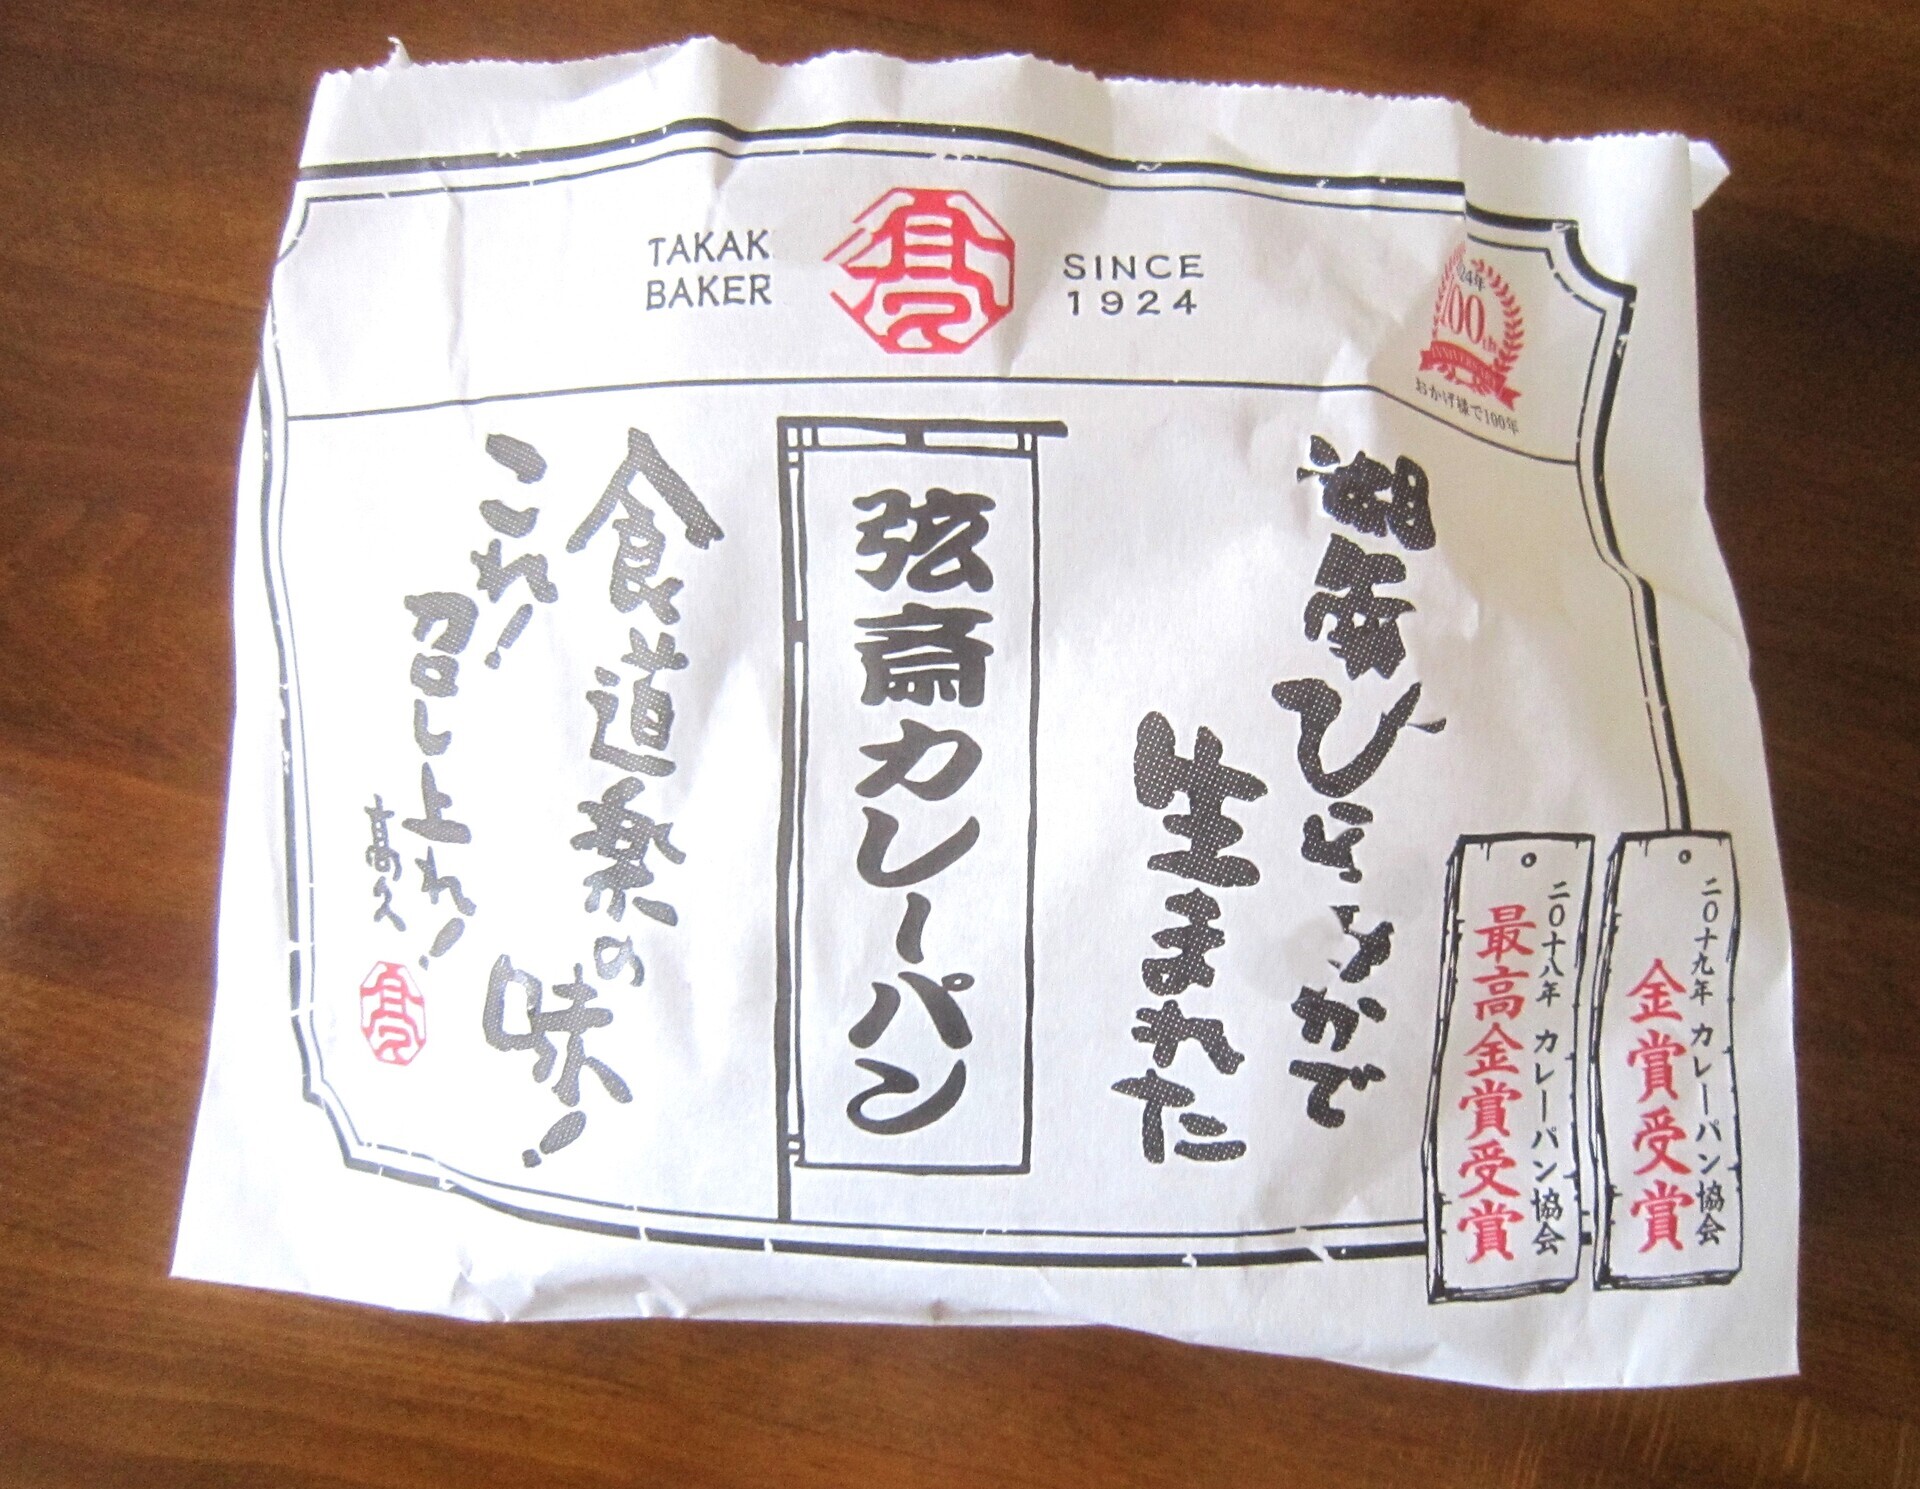 TAKAK
BAKER
SINCE
1924
24年
100th
おかげ様で100年
湘南ひらつかで
生まれた
弦斎カレーパン
食道楽の味!
これ!
召し上れ!
高久
二〇十九年 カレーパン協会
金賞受賞
二〇十八年 カレーパン協会
最高金賞受賞